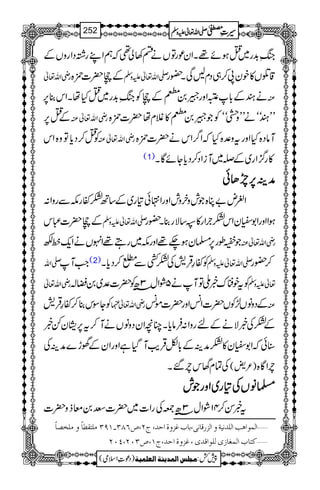 سیرتِ مصطفیٰ صلی اللہ تعالیٰ علیہ وسلم 252
جنگ بدر میں قتل ہوئے تھے۔ ان عورتوں نے قسم کھائی تھی کہ ہم اپنے رشتہ داروں کے
قاتلوں کا خون پی کر ہی دم لیں گی۔ حضور صلی اللہ تعالیٰ علیہ وسلم کے چچا حضرت حمزہ رضی اللہ تعالیٰ
عنہ نے ہند کے باپ عتبہ اور جبیر بن مطعم کے چچا کو جنگ بدر میں قتل کیا تھا۔ اس بنا پر
”ہند“ نے ”وحشی“ کو جو جبیر بن مطعم کا غلام تھا حضرت حمزہ رضی اللہ تعالیٰ عنہ کے قتل پر
آمادہ کیا اور یہ وعدہ کیا کہ اگر اس نے حضرت حمزہ رضی اللہ تعالیٰ عنہ کو قتل کر دیا تو وہ اس
کارگزاری کے صلہ میں آزاد کر دیا جائے گا۔ (1)
مدینہ پر چڑھائی
الغرض بے پناہ جوش و خروش اور انتہائی تیاری کے ساتھ لشکر کفار مکہ سے روانہ
ہوا اور ابوسفیان اس لشکر جرار کا سپہ سالار بنا۔ حضور صلی اللہ تعالیٰ علیہ وسلم کے چچا حضرت عباس
رضی اللہ تعالیٰ عنہ جو خفیہ طور پر مسلمان ہو چکے تھے اور مکہ میں رہتے تھے انہوں نے ایک خط لکھ
کر حضور صلی اللہ تعالیٰ علیہ وسلم کو کفار قریش کی لشکر کشی سے مطلع کر دیا۔ (2) جب آپ صلی اللہ
تعالیٰ علیہ وسلم کو یہ خوفناک خبر ملی تو آپ نے ۵ شوال ۳ھ کو حضرت عدی بن فضالہ رضی اللہ تعالیٰ
عنہ کے دونوں لڑکوں حضرت انس اور حضرت مونس رضی اللہ تعالیٰ عنہما کو جاسوس بنا کر کفار قریش
کے لشکر کی خبر لانے کے لئے روانہ فرمایا۔ چنانچہ ان دونوں نے آ کر یہ پریشان کن خبر
سنائی کہ ابوسفیان کا لشکر مدینہ کے بالکل قریب آ گیا ہے اور ان کے گھوڑے مدینہ کی
چراگاہ (عریض) کی تمام گھاس چر گئے۔
مسلمانوں کی تیاری اور جوش
یہ خبر سن کر ۱۴ شوال ۳ھ جمعہ کی رات میں حضرت سعد بن معاذ و حضرت
.....المواهب اللدنية و الزرقانی، باب غزوة احد، ج۲، ص۳۸۶۔۳۹۱ ملتقطاً و ملخصاً
.....كتاب المغازی للواقدی، غزوة احد، ج۱، ص۲۰۳۔۲۰۴
پیش کش: مجلس المدينة العلمية (دعوتِ اسلامی)